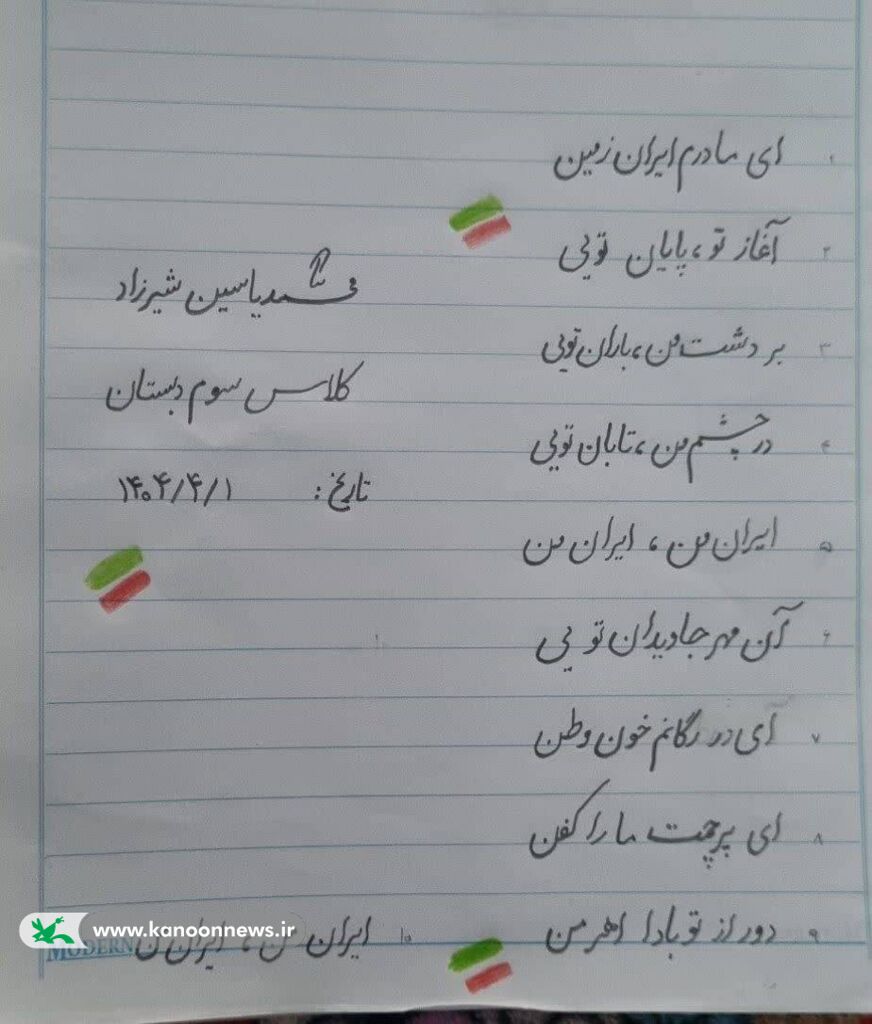 ۱ ای مادرم ایران زمین
۲ آغاز تو، پایان تویی
۳ بر دشت من، باران تویی
۴ در چشم من، تابان تویی
۵ ایران من، ایران من
۶ آن مهر جاویدان تویی
۷ آی در رگانم خون وطن
۸ ای پرچمت ما را کفن
۹ دور از تو بادا اهرمن
۱۰ ایران من، ایران من
محمد یاسین شیرزاد
کلاس سوم دبستان
تاریخ: ۱۴۰۴/۴/۱
www.kanoonnews.ir
MODERN